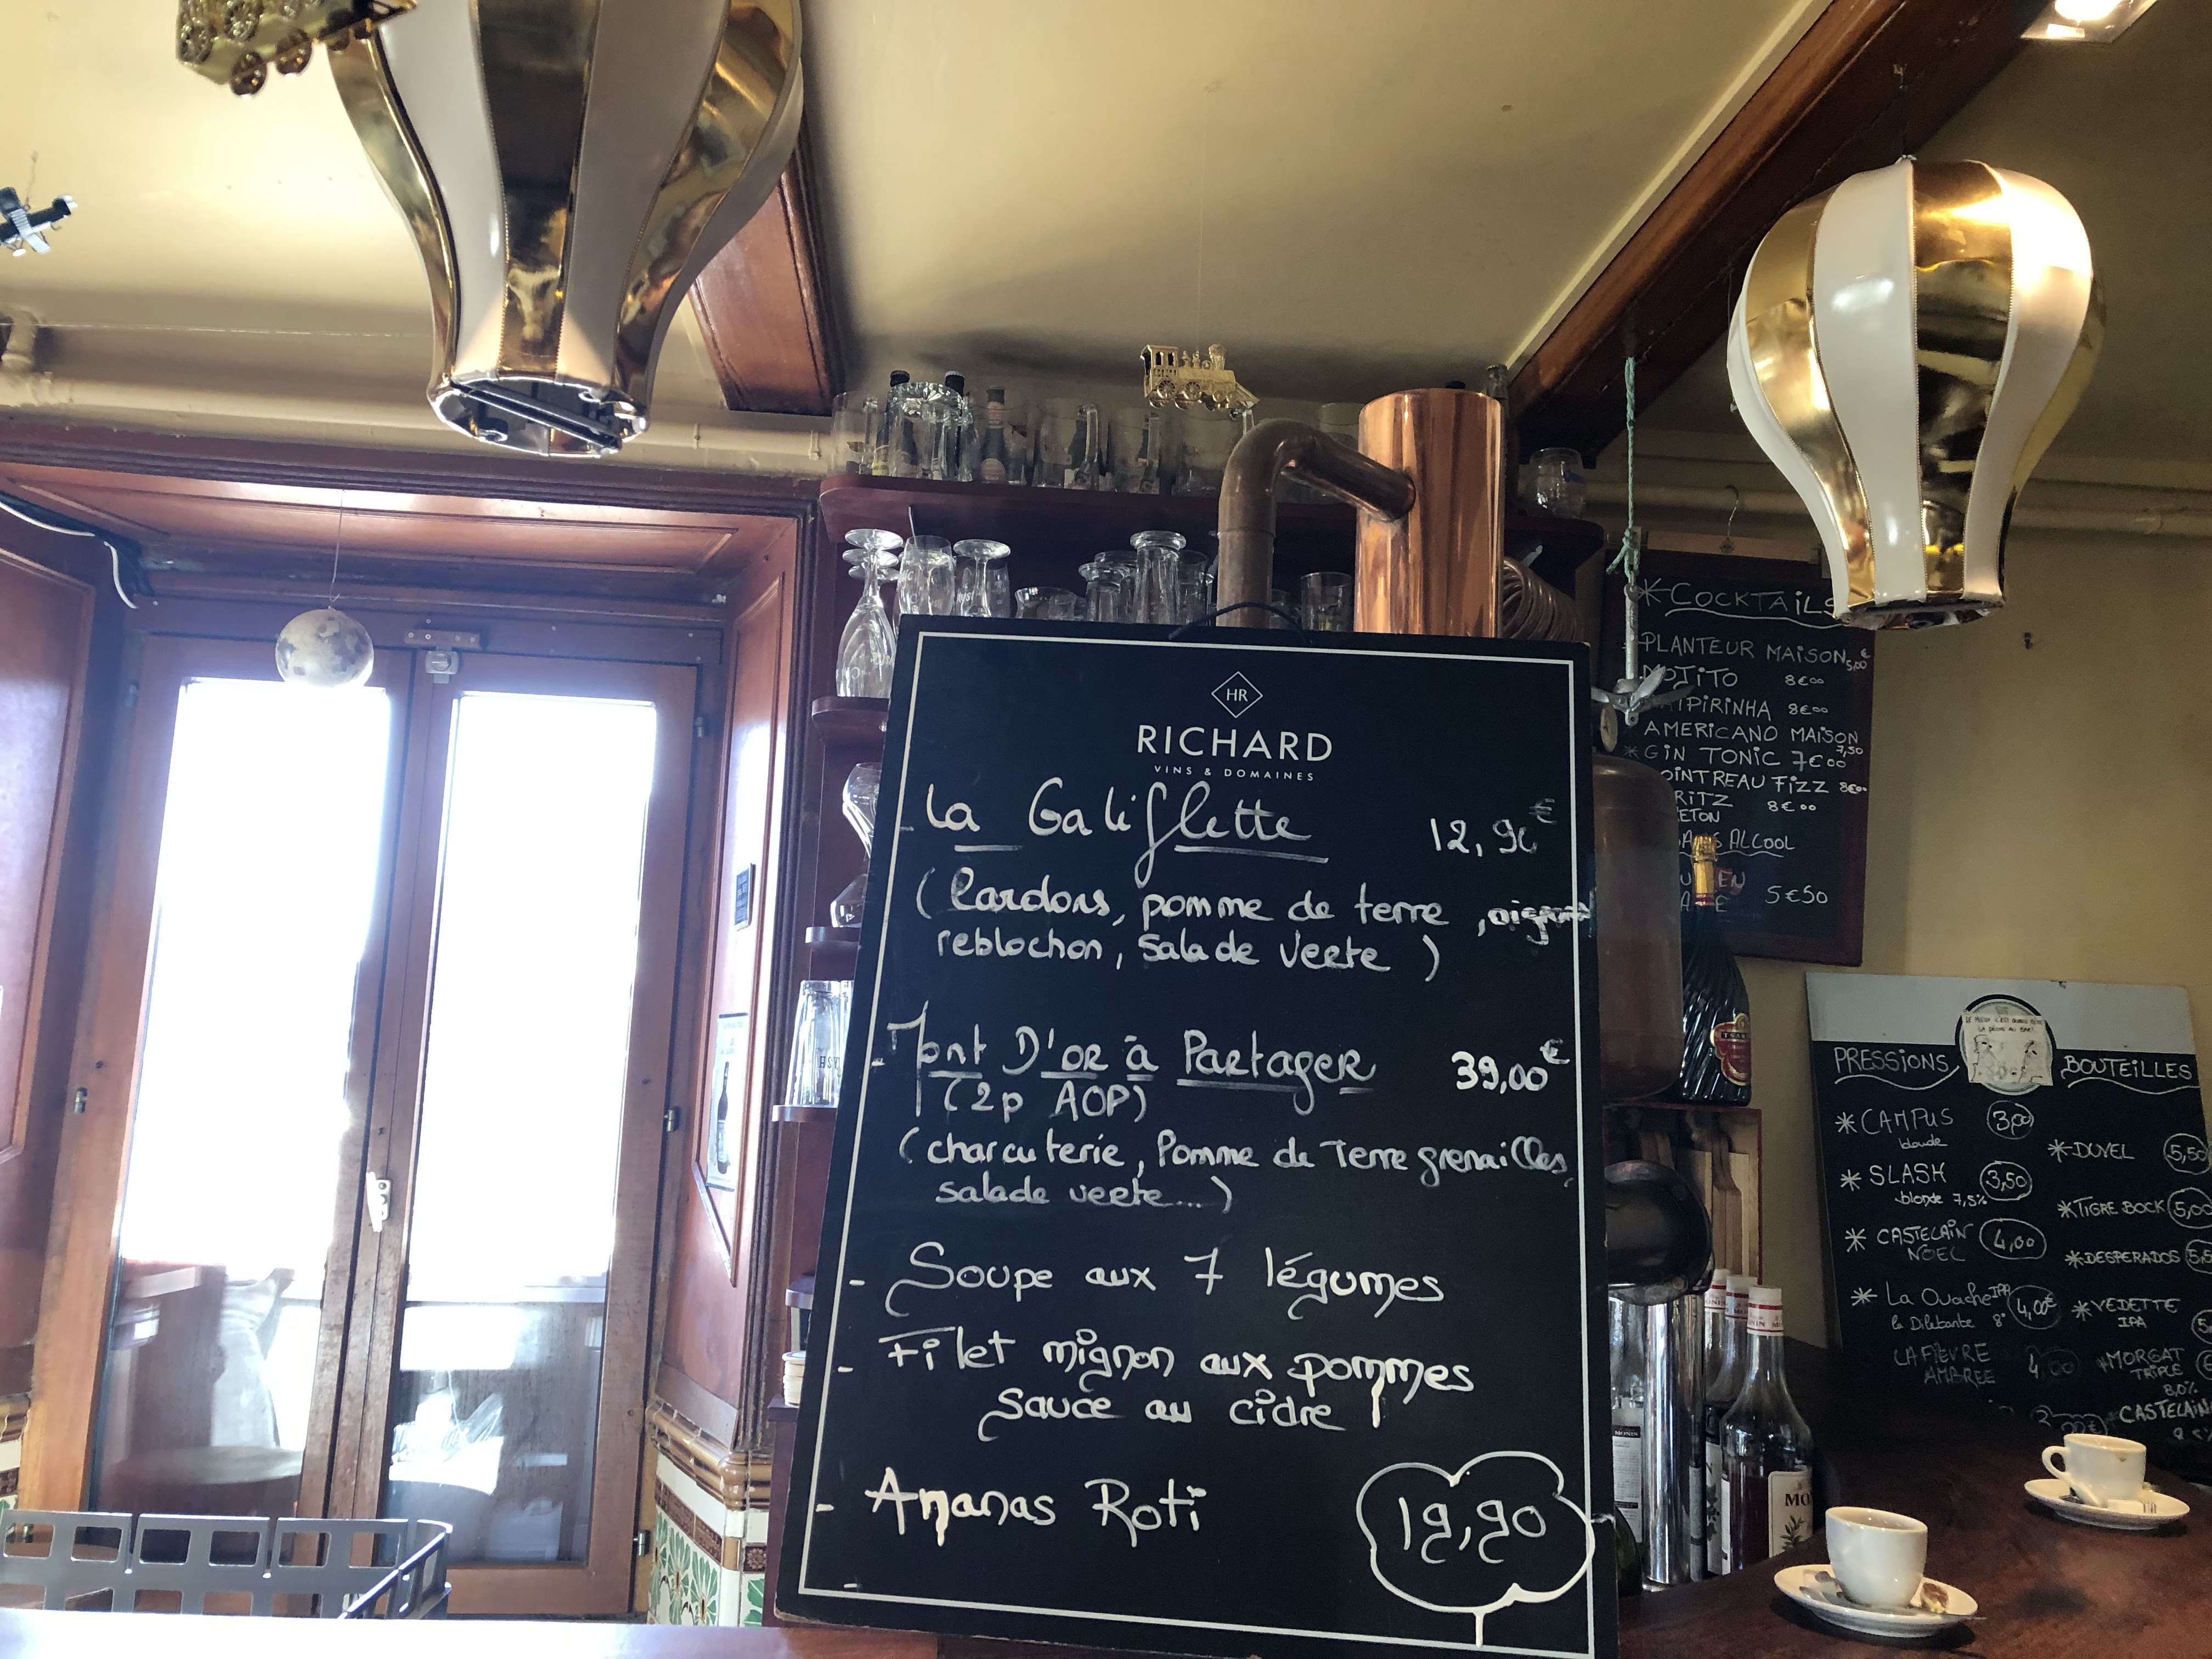 HR
RICHARD
VINS & DOMAINES
- La Galiflette 12,90€
(lardons, pomme de terre,
reblochon, salade verte)
- Mont D'or à Partager 39,00€
(2p AOP)
(charcuterie, Pomme de Terre grenailles,
salade verte...)
- Soupe aux 7 légumes
- Filet mignon aux pommes
sauce au cidre
- Ananas Roti
19,90
-
* COCKTAILS
PLANTEUR MAISON 5,00€
MOJITO 8€00
AIPIRINHA 8€00
AMERICANO MAISON
7,50
* GIN TONIC 7€00
OINTREAU FIZZ 8€00
RITZ 8€00
ETON
ALCOOL
5€50
TSAR
PRESSIONS
* CAMPUS 3,00
blonde
* SLASH 3,50
blonde 7,5%
* CASTELAIN 4,00
NOEL
* La Ouache IPA 4,00€
la Dilettante 8°
LA FIEVRE 4,00
AMBREE
BOUTEILLES
* DUVEL 5,50
* TIGRE BOCK 5,00
* DESPERADOS 5,5
* VEDETTE
IPA
* MORGAT
TRIPLE
8,0%
* CASTELAIN
MONIN
MO